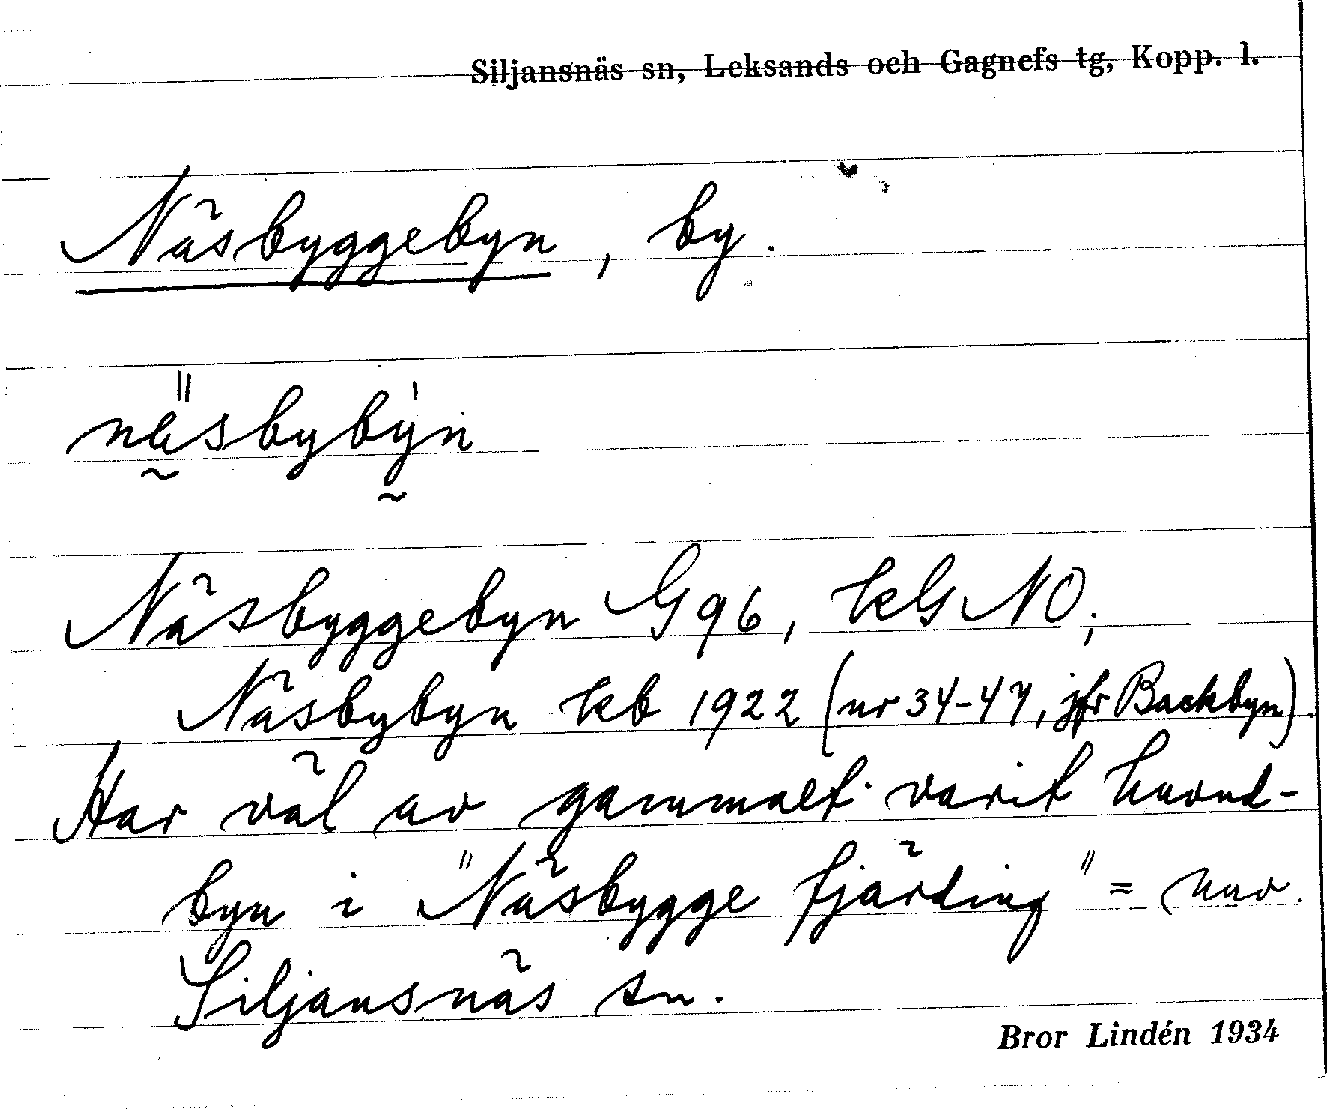 Siljansnäs sn, Leksands och Gagnefs tg, Kopp. l.
Näsbyggebyn, by.
näsbybyn
Näsbyggebyn G96, kG NO;
Näsbybyn kb 1922 (nr 34-47, jfr Backbyn).
Har väl av gammalt varit huvud-
byn i "Näsbygge fjärding" = nuv.
Siljansnäs sn.
Bror Lindén 1934